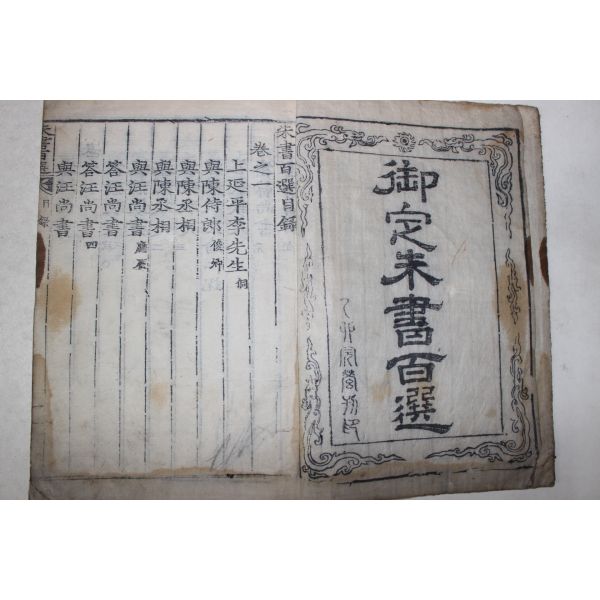 御定朱書百選
乙卯完營刊印
朱書百選目錄
卷之一
上延平李先生
與陳侍郎 俊卿
與陳丞相
與陳丞相 二
與汪尚書 應辰
答汪尚書
答汪尚書 四
與汪尚書
朱書百選 目錄